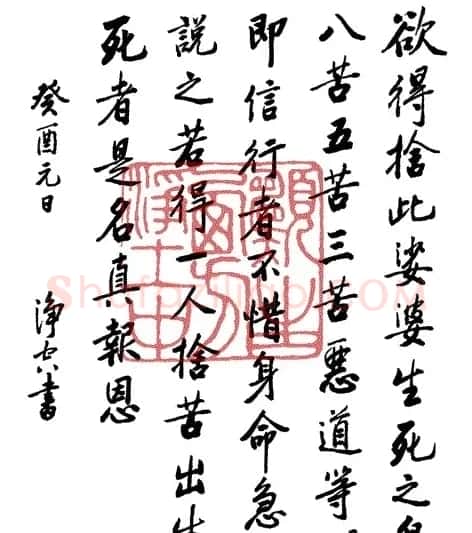 欲得捨此娑婆生死之
八苦五苦三苦惡道等
即信行者不惜身命急
說之若得一人捨苦出生
死者是名真報恩
癸酉元日
淨空書